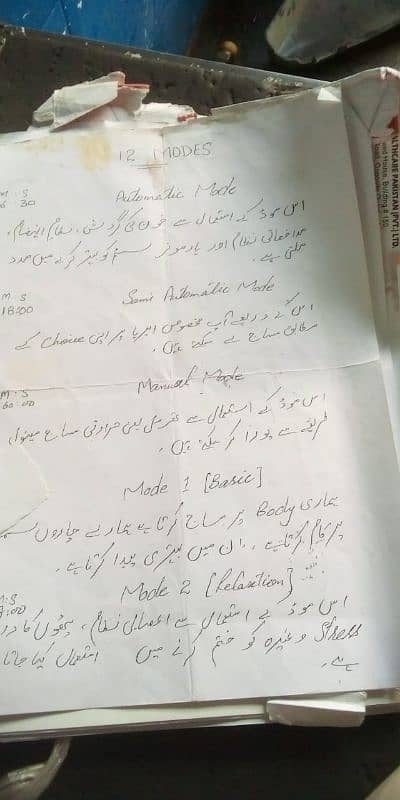 12 MODES
M : S
6 30
Automatic Mode
اس موڈ کے استعمال سے خون کی گردش، نظام انہضام،
مدافعاتی نظام اور ہارمونز سسٹم کو بہتر کرنے میں مدد
ملتی ہے۔
M : S
18:00
Semi Automatic Mode
اس کے ذریعے آپ مخصوص ایریا پر اپنی Choice کے
مطابق مساج لے سکتے ہیں۔
M : S
60:00
Manual Mode
اس موڈ کے استعمال سے تھرمل یعنی حرارتی مساج مینول
طریقے سے پورا کر سکتے ہیں۔
Mode 1 [Basic]
ہماری Body پر مساج کرتا ہے ہمارے چاروں
پر کام کرتا ہے۔ ان میں بہتری پیدا کرتا ہے۔
Mode 2 [Relaxition]
M:S
اس موڈ کے استعمال سے اعصابی نظام، پٹھوں کا درد
Stress وغیرہ کو ختم کرنے میں استعمال کیا جاتا
ہے۔
ALTHCARE PAKISTAN (PVT) LTD
House, Building # 150